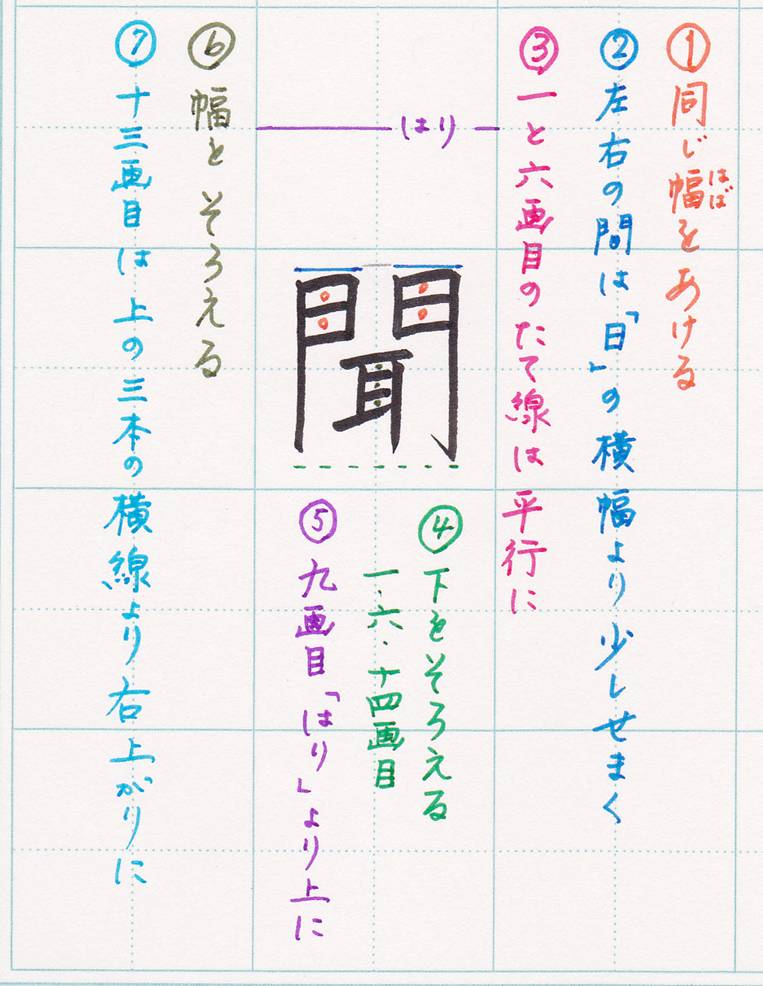 ①同じ幅をあける
はば
②左右の間は「日」の横幅より少しせまく
③一と六画目のたて線は平行に
はり
聞
④下をそろえる
一・六・十四画目
⑤九画目「はり」より上に
⑥幅をそろえる
⑦十三画目は上の三本の横線より右上がりに